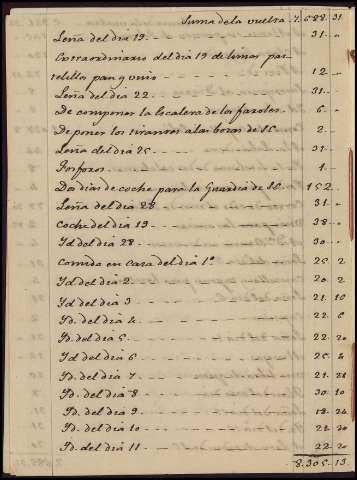 Suma de la vuelta 7.588.. 31
Leña del dia 19 31.. "
Extraordinario del dia 19 de limas pas
telillos pan y vino 12.. "
Leña del dia 22. 31.. "
De componer la escalera de la faroles. 6.. "
De poner los tirantes a las botas de S.E. 2.. "
Leña del dia 25 31.. "
Fosforos 1.. "
Dos dias de coche para la Guardia de S.E. 152..
Leña del dia 28 31.. "
Coche del dia 19 38.. "
Id del dia 28. 30.. "
Comida en Casa del dia 1º 25.. 2
Id del dia 2. 20.. 2
Id del dia 3 21.. 16
Id. del dia 4 22.. 6
Id. del dia 5. 22.. 20
Id del dia 6 25.. 4
Id. del dia 7 21.. 28
Id. del dia 8 30.. 10
Id. del dia 9 18.. 24
Id. del dia 10 21.. 20
Id. del dia 11 22.. 20
8.305.. 13